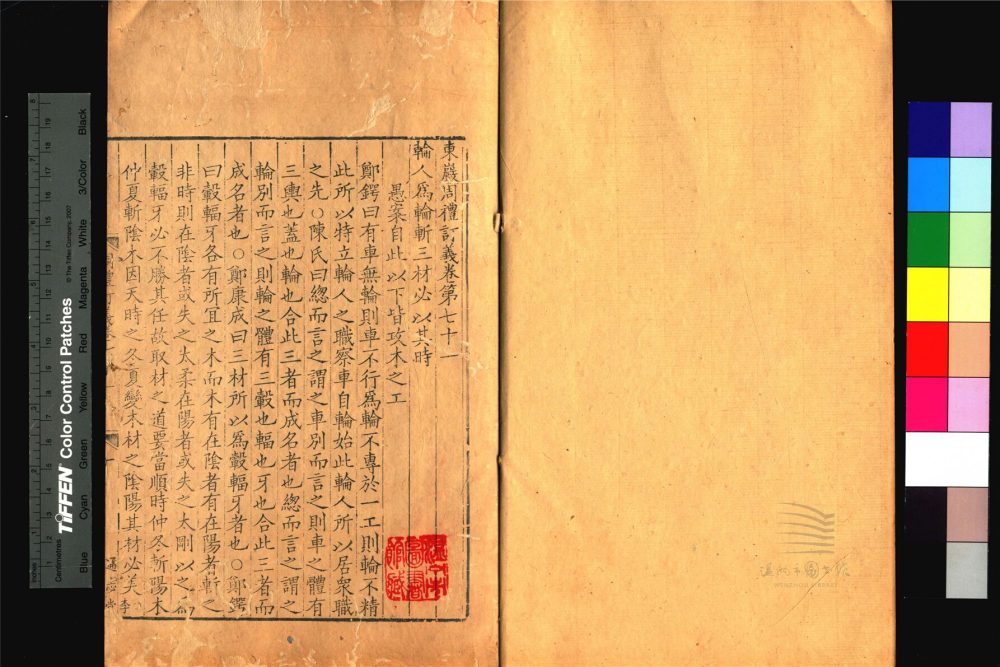 東巖周禮訂義卷第七十一
輪人爲輪斬三材必以其時
愚案自此以下皆攻木之工
鄭鍔曰有車無輪則車不行爲輪不專於一工則輪不精
此所以特立輪人之職察車自輪始此輪人所以居衆職
之先○陳氏曰緫而言之謂之車別而言之則車之體有
三輿也蓋也輪也合此三者而成名者也緫而言之謂之
輪別而言之則輪之體有三轂也輻也牙也合此三者而
成名者也○鄭康成曰三材所以爲轂輻牙者也○鄭鍔
曰轂輻牙各有所宜之木而木有在陰者有在陽者斬之
非時則在陰者或失之太柔在陽者或失之太剛以之爲
轂輻牙必不勝其任故取材之道要當順時仲冬斬陽木
仲夏斬陰木因天時之冬夏變木材之陰陽其材必美
李
通志堂
Inches
Centimetres
TIFFEN Color Control Patches
© The Tiffen Company, 2007
Blue Cyan Green Yellow Red Magenta White 3/Color Black
温州市圖書館
WENZHOU LIBRARY